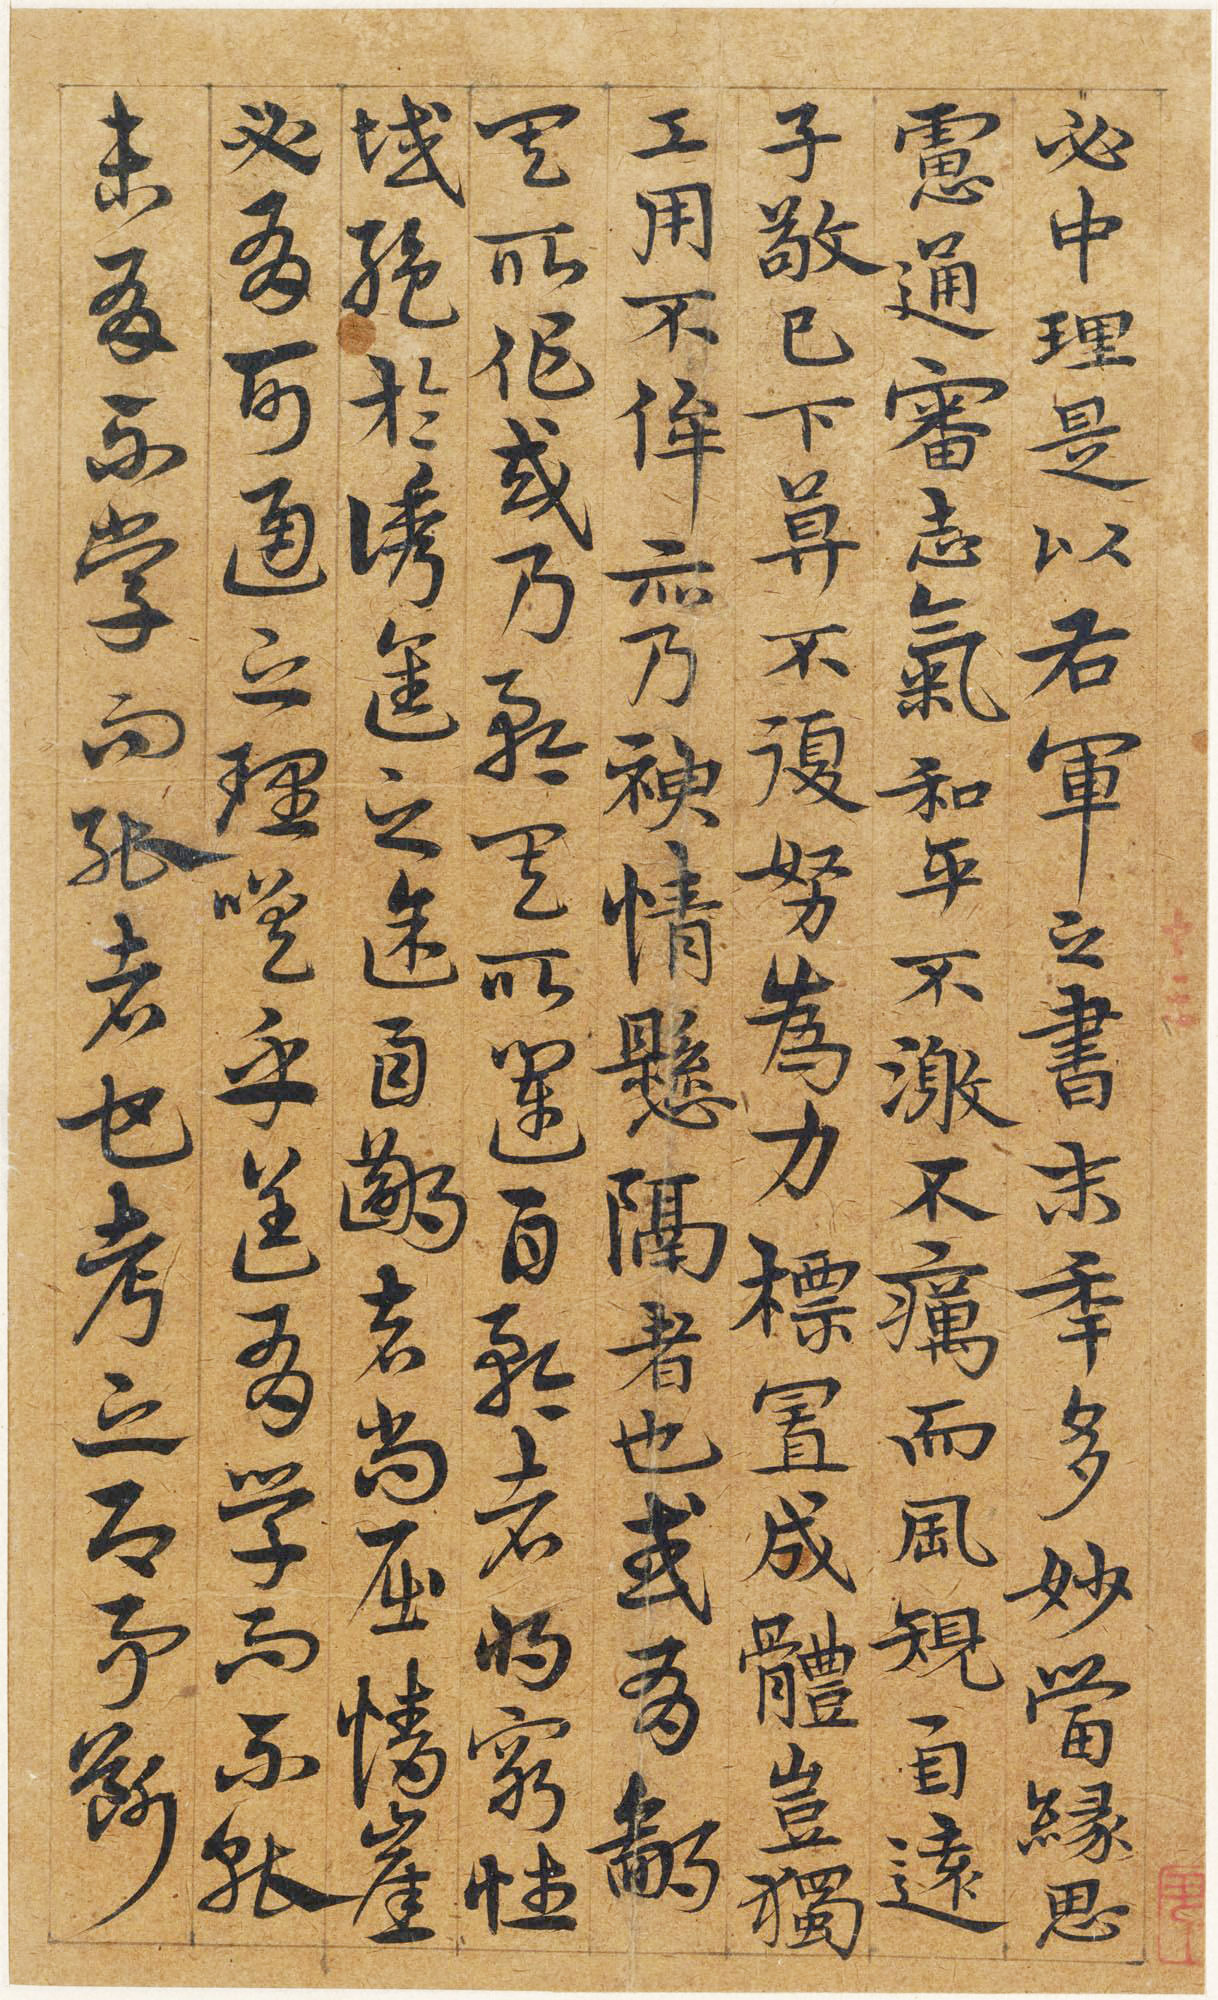 必中理是以右軍之書末秊多妙當緣思
慮通審志氣和平不激不癘而風規自遠
子敬已下莫不鼓努為力標置成體豈獨
工用不侔亦乃神情懸隔者也或有鄙
其所作或乃矜其所運自矜者將窮性
域絕於誘進之途自鄙者尚屈情崖
必有可通之理嗟乎蓋有學而不能
未有不學而能者也考之即事斷